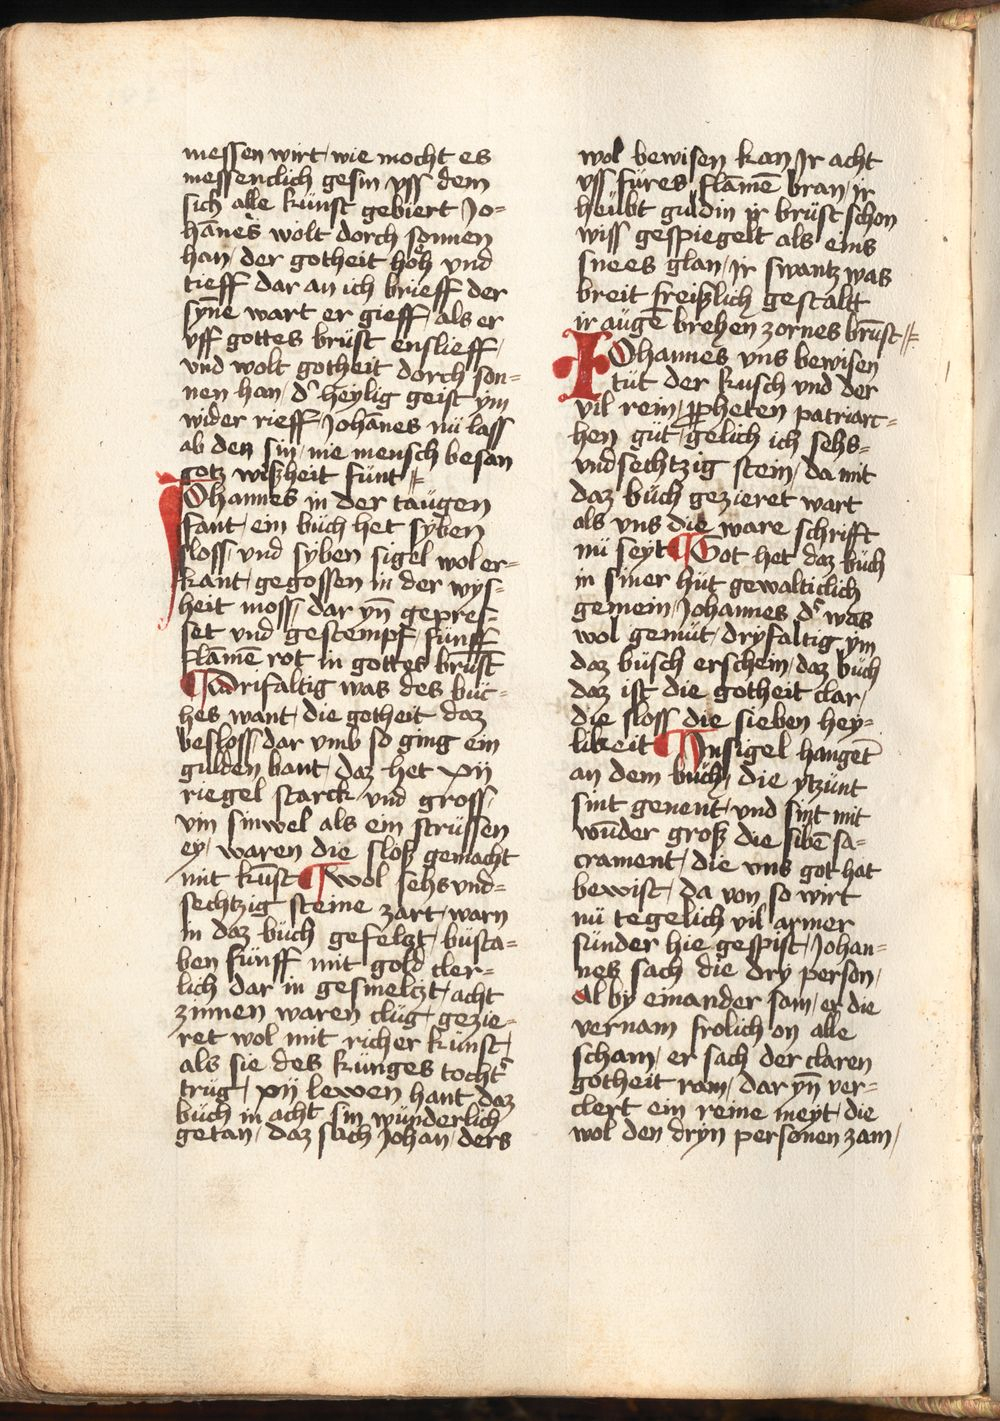 messen wirt / wie mocht es
messenclich gesin vss dem
sich alle künst gebiert Jo=
hānes wolt dorch sonnen
han / der gotheit hoh vnd
tieff dar an ich brieff der
syn̄e wart er gieff / als er
vff gottes brust enslieff /
vnd wolt gotheit dorch son=
nen han / dʼ heylig geist ym
wider rieff / Johānes nü lass
ab den sin / nie mensch besan
gotz wißheit fünt //
JOhannes in der taügen
fant / ein büch het syben
sloss / vnd syben sigel wol er=
kant / gegossen in der wys=
heit moss / dar yn̄ gepres=
set vnd gestempf / fünff
flāmē rot in gottes brūst
¶ Drifaltig was des büc=
hes want / die gotheit daz
besloss / dar vmb so ging ein
gulden bant / daz het xij
riegel starck / vnd gross /
vin sinwel als ein strüssen
ey / waren die sloß gemacht
mit kūst ¶ wol sehs vnd=
sechtzig steine zart / warn
in daz büch gefelzt / büsta=
ben fünff mit gold cler=
lich dar in gesmelzt / acht
zinnen waren clüg / gezie=
ret wol mit richer künst /
als sie des künges tochtʼ
trüg / xij lewen hant daz
büch in acht sin wünderlich
getan / daz sach Johan / ders
wol bewisen kan Jr acht
vss füres flāmē bran / jr
heübt guldin jr brüst schon
wiss gespiegelt als eins
snees glan / jr swantz was
breit freißlich gestalt
ir aügē brehen zornes brūst //
JOhannes vns bewisen
tüt der kusch vnd der
vil rein / ꝓpheten patriarc=
hen güt / gelich ich sehs=
vndsechtzig stein / da mit
daz büch gezieret wart
als vns die ware schrifft
nü seyt ¶ Got het daz büch
in siner hüt gewalticlich
gemein / Johannes dʼ was
wol gemüt / dryfaltig ym
daz büsch erschein / daz büch
daz ist die gotheit clar /
die sloss die sieben hey=
likeit ¶ Jnsigel hangēt
an dem büch / die ytzünt
sint genent / vnd sint mit
wūder groß die sibē sa=
crament / die vns got hat
bewist / da von so wirt
nü tegelich vil armer
sünder hie gespist / Johan=
nes sach die dry person /
al by einander sam / er die
vernam frolich on alle
scham / er sach der claren
gotheit ram / dar yn̄ ver=
clert ein reine meyt / die
wol den dryn personen zam /